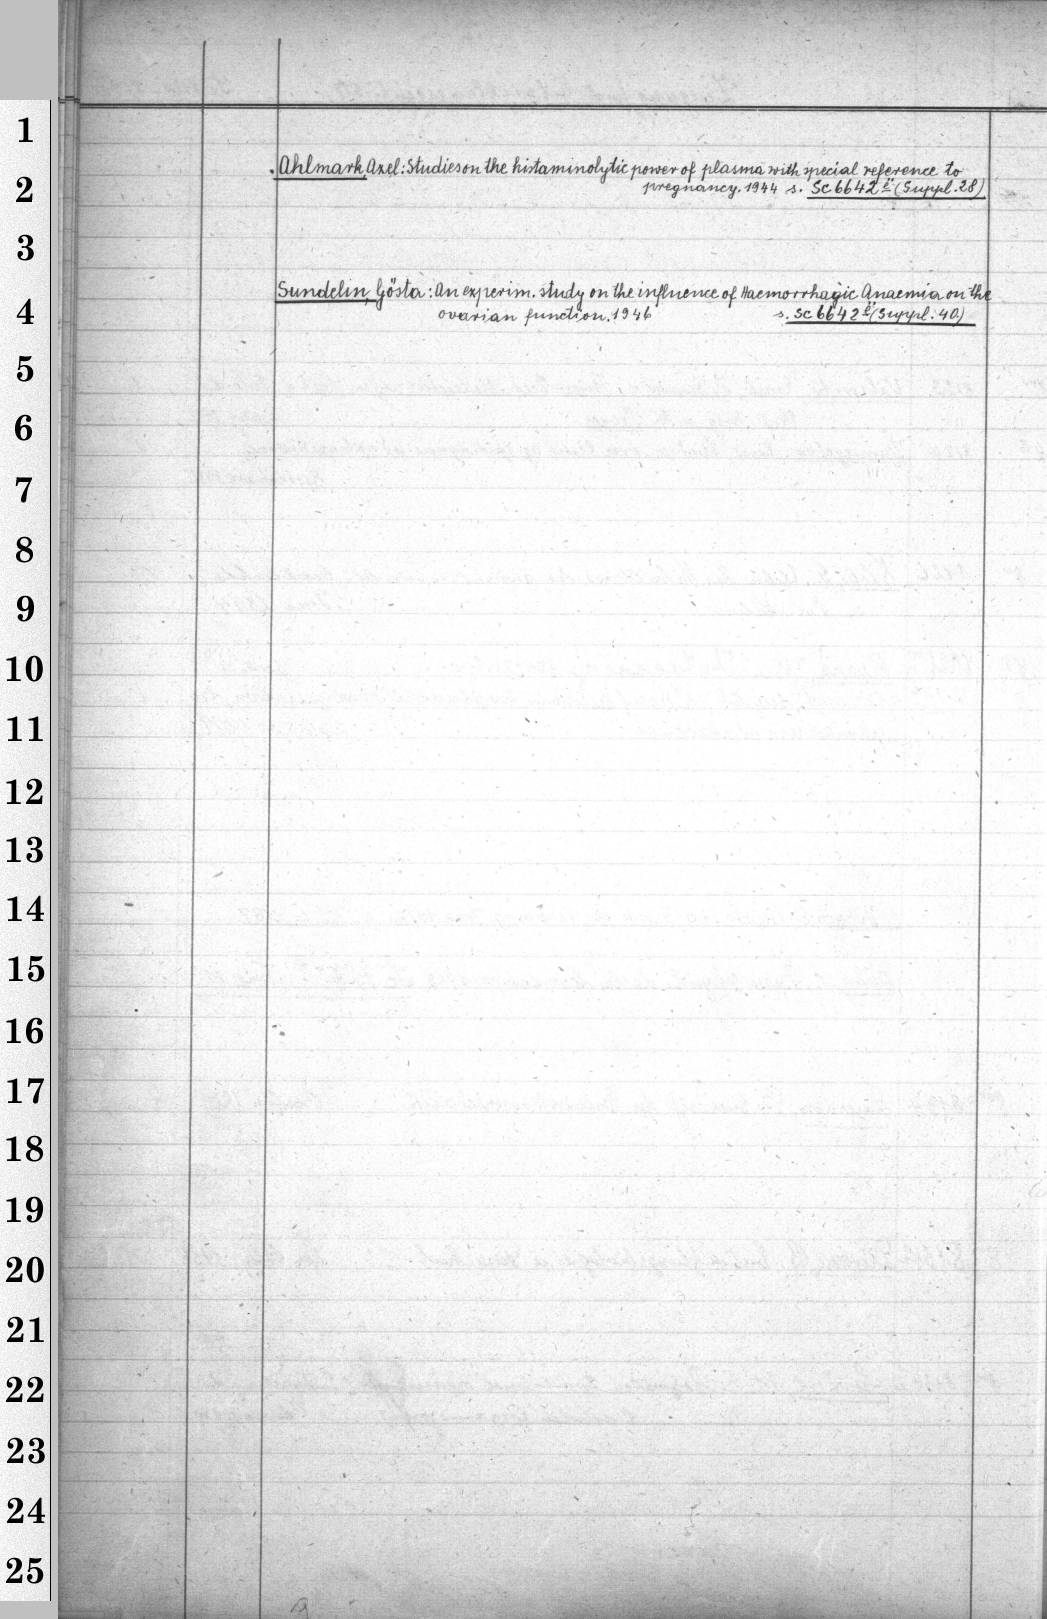 1
2
3
4
5
6
7
8
9
10
11
12
13
14
15
16
17
18
19
20
21
22
23
24
25
Ahlmark, Axel: Studies on the histaminolytic power of plasma with special reference to
pregnancy. 1944 s. Sc 6642 (Suppl. 28)
Sundelin, Gösta: An experim. study on the influence of Haemorrhagic Anaemia on the
ovarian function. 1946 s. Sc 6642 (Suppl. 40)